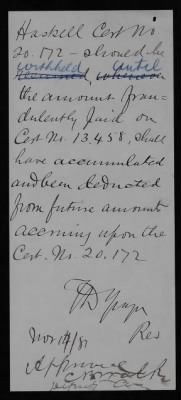 Haskell Cert No
20.172 - should be
withheld until
the amount frau-
dulently paid on
Cert No. 13.458, shall
have accumulated
and been deducted
from future amounts
accruing upon the
Cert. No. 20.172
Rev
Nov 14/81
Approved